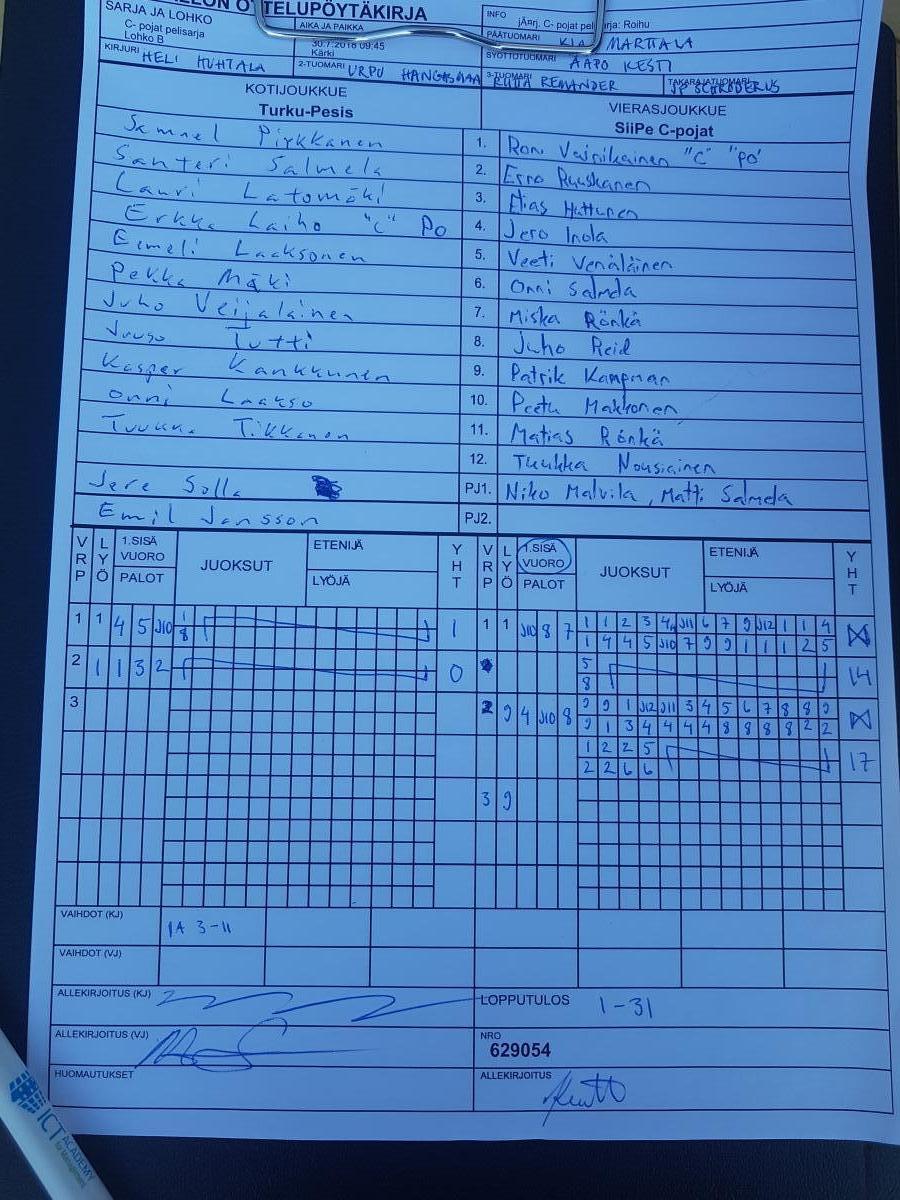 TELUPÖYTÄKIRJA
SARJA JA LOHKO
C- pojat pelisarja
Lohko B
AIKA JA PAIKKA
30.7.2018 09:45
Kärki
INFO
järj. C- pojat pelisarja: Roihu
PÄÄTUOMARI MARTTALA
KIRJURI HELI HUHTALA
2-TUOMARI URPU HANGASMAA
SYÖTTÖTUOMARI AAPO KESTI
3-TUOMARI RIINA REMANDER
TAKARAJATUOMARI JP SCHRÖDERUS
KOTIJOUKKUE
Turku-Pesis
VIERASJOUKKUE
SiiPe C-pojat
Samuel Pirkkanen 1. Roni Vainikainen "C" "PO"
Santeri Salmela 2. Eero Ruuskanen
Lauri Latomäki 3. Elias Huttunen
Erkka Laiho "C" Po 4. Jero Inola
Eemeli Laaksonen 5. Veeti Venäläinen
Pekka Mäki 6. Onni Salmela
Juho Veijalainen 7. Miska Rönkä
Juuso Tutti 8. Juho Reid
Kasper Kankkunen 9. Patrik Kampman
Onni Laakso 10. Peetu Makkonen
Tuukka Tikkanen 11. Matias Rönkä
12. Tuukka Nousiainen
Jere Solla PJ1. Niko Malvila, Matti Salmela
Emil Jansson PJ2.
VRP LYÖ 1.SISÄ VUORO PALOT JUOKSUT ETENIJÄ LYÖJÄ YHT VRP LYÖ 1.SISÄ VUORO PALOT JUOKSUT ETENIJÄ LYÖJÄ YHT
1 1 4 5 J10 1 1 1 1 J10 8 7 1 1 2 3 4 J11 6 7 9 J12 1 1 4
8 1 4 4 5 J10 7 9 9 1 1 1 2 5
2 1 1 3 2 0 5 14
8
3 2 9 4 J10 8 9 9 1 J12 J11 3 4 5 6 7 8 8 9
9 1 3 4 4 4 4 8 8 8 8 2 2
1 2 2 5 17
2 2 6 6
3 9
VAIHDOT (KJ) 1A 3-11
VAIHDOT (VJ)
ALLEKIRJOITUS (KJ) LOPPUTULOS 1-31
ALLEKIRJOITUS (VJ) NRO
629054
HUOMAUTUKSET ALLEKIRJOITUS
ICT ACADEMY
for Management